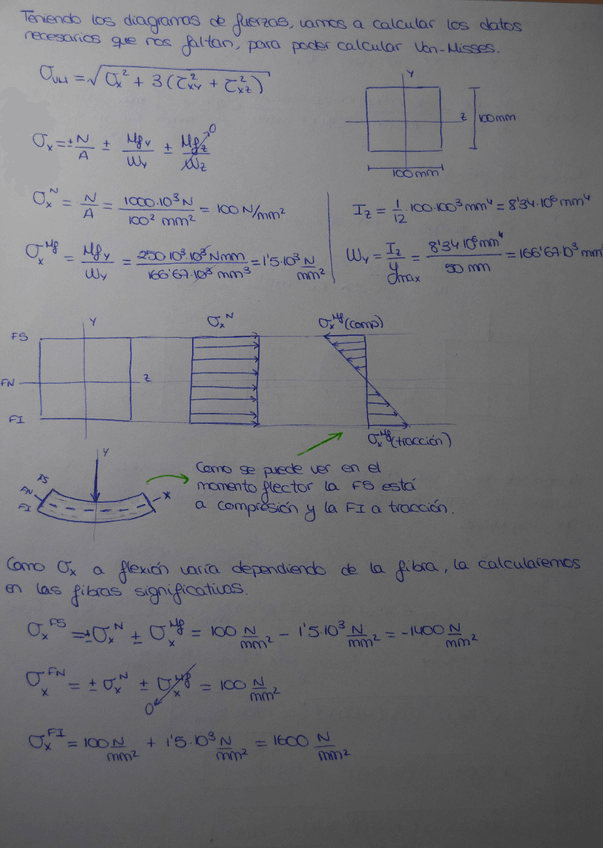 Teniendo los diagramas de fuerzas, vamos a calcular los datos
necesarios que nos faltan, para poder calcular Von-Misses.
σVM = √(σx² + 3(τxy² + τxz²))
Y
Z
100mm
100mm
σx = ± N/A ± Mfy/Wy ± Mfz/Wz 0
σx^N = N/A = 1000·10³N / 100² mm² = 100 N/mm²
Iz = 1/12 · 100·100³ mm⁴ = 8'34·10⁶ mm⁴
σx^Mf = Mfy/Wy = 250·10³·10³ Nmm / 166'67·10³ mm³ = 1'5·10³ N/mm²
Wy = Iz/ymax = 8'34·10⁶ mm⁴ / 50 mm = 166'67·10³ mm³
FS
Y
σx^N
σx^Mf (comp)
FN
Z
FI
σx^Mf (tracción)
Y
FS
FN
FI
X
Como se puede ver en el
momento flector la FS está
a compresión y la FI a tracción.
Como σx a flexión varía dependiendo de la fibra, la calcularemos
en las fibras significativas.
σx^FS = ± σx^N ± σx^Mf = 100 N/mm² - 1'5·10³ N/mm² = -1400 N/mm²
σx^FN = ± σx^N ± σx^Mf 0 = 100 N/mm²
σx^FI = 100 N/mm² + 1'5·10³ N/mm² = 1600 N/mm²